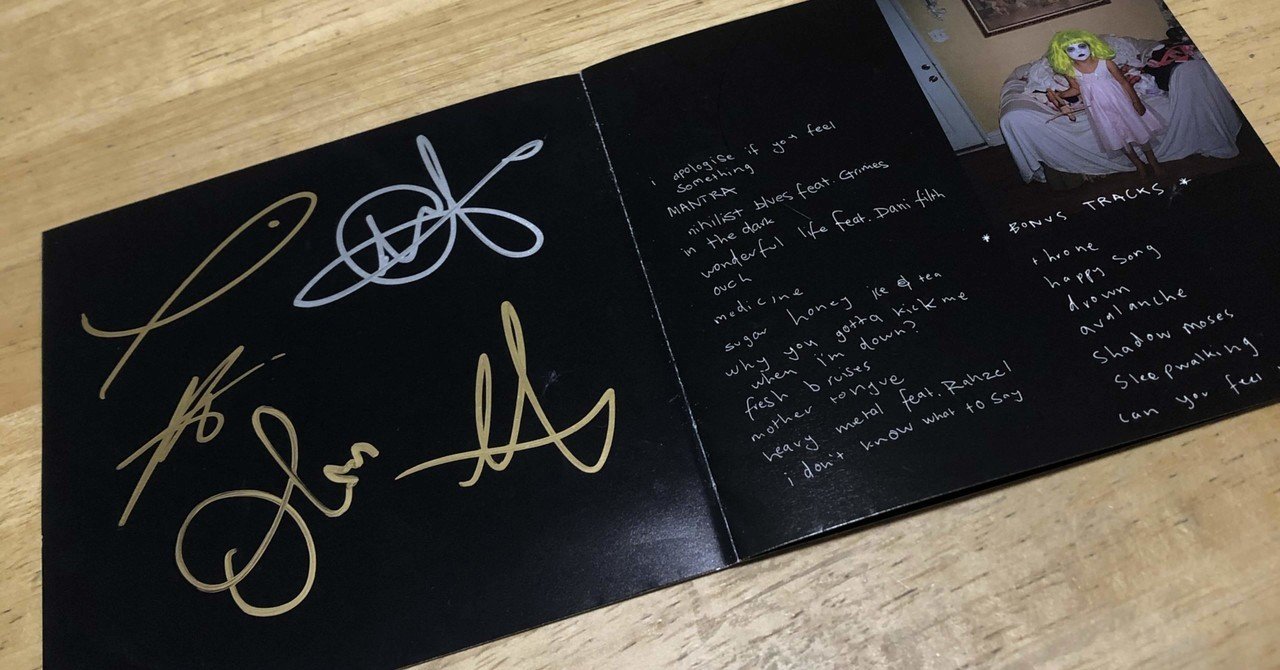 i apologise if you feel
something
MANTRA
nihilist blues feat. Grimes
in the dark
wonderful life feat. Dani filth
ouch
medicine
sugar honey ice & tea
why you gotta kick me
when i'm down?
fresh bruises
mother tongue
heavy metal feat. Rahzel
i don't know what to say
* BONUS TRACKS *
throne
happy song
drown
avalanche
Shadow moses
Sleepwalking
can you feel